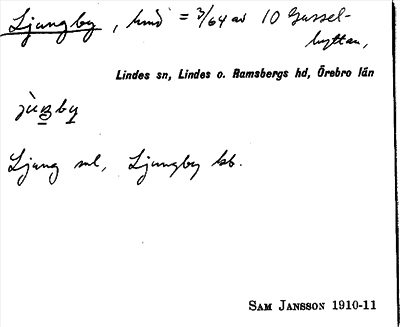 Ljungby, hmd = 3/64 av 10 Gussel-
hyttan,
Lindes sn, Lindes o. Ramsbergs hd, Örebro län
Ljung sml, Ljungby bb.
SAM JANSSON 1910-11